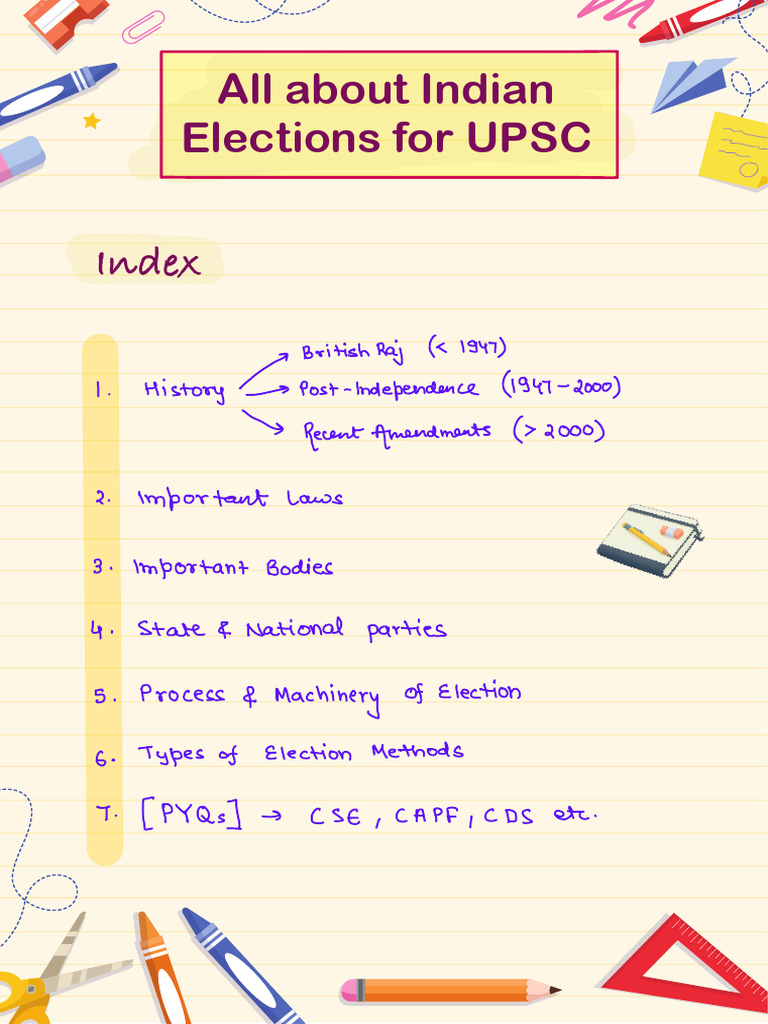 All about Indian
Elections for UPSC
Index
British Raj (< 1947)
1. History → Post-Independence (1947-2000)
Recent Amendments (> 2000)
2. Important Laws
3. Important Bodies
4. State & National parties
5. Process & Machinery of Election
6. Types of Election Methods
7. [PYQs] → CSE, CAPF, CDS etc.